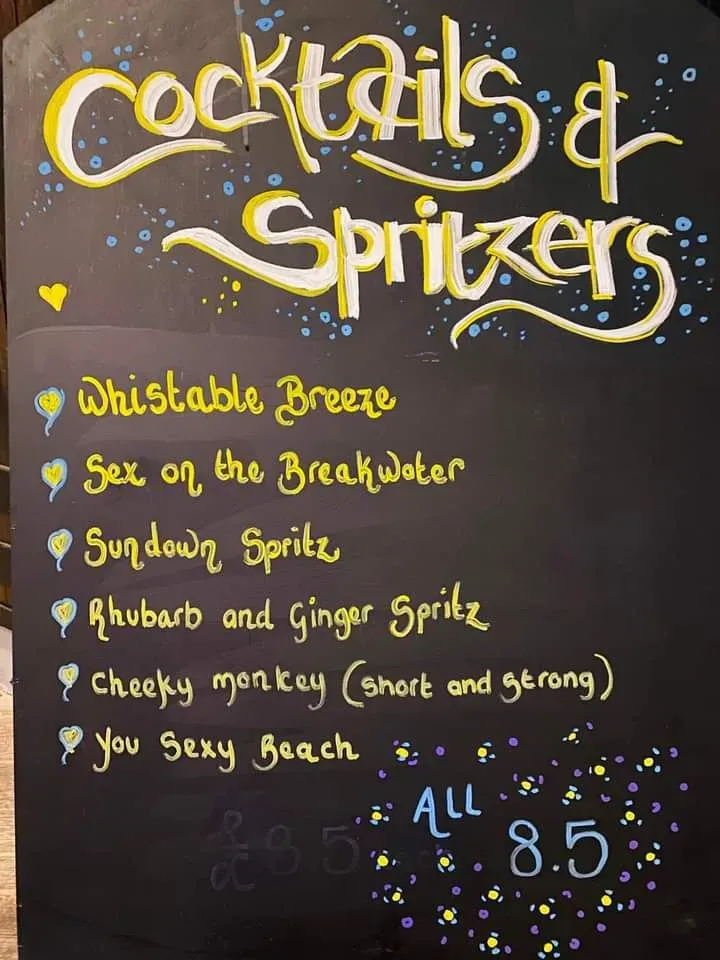 Cocktails &
Spritzers
Whistable Breeze
Sex on the Breakwater
Sundown Spritz
Rhubarb and Ginger Spritz
Cheeky monkey (short and strong)
You Sexy Beach
All
8.5